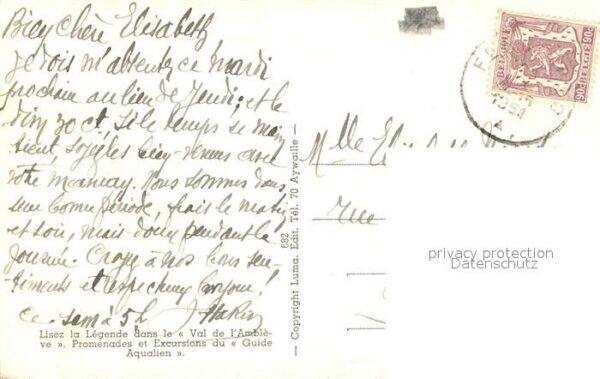 Bien chère Elisabeth
Je dois m'absenter ce mardi
prochain au lieu de Jeudi; et le
30 ct. Si le temps se main
tient soyez les bien-venues avec
votre maman. Nous sommes dans
une bonne période, frais le matin
et soir, mais doux pendant le
journée. Croyez à nos bons sen-
timents et
ce sera à 5h
Lisez la Légende dans le « Val de l'Amblè-
ve ». Promenades et Excursions du « Guide
Aqualien ».
682
— Copyright Luma. Edit. Tél. 70 Aywaille —
BELGIQUE
90c BELGIE 90c
1951
Mlle
rue
privacy protection
Datenschutz